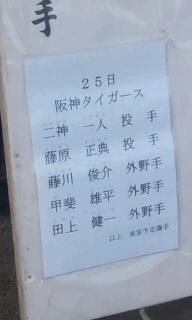 手
25日
阪神タイガース
二神 一人 投手
藤原 正典 投手
藤川 俊介 外野手
甲斐 雄平 外野手
田上 健一 外野手
以上 来宮予定選手